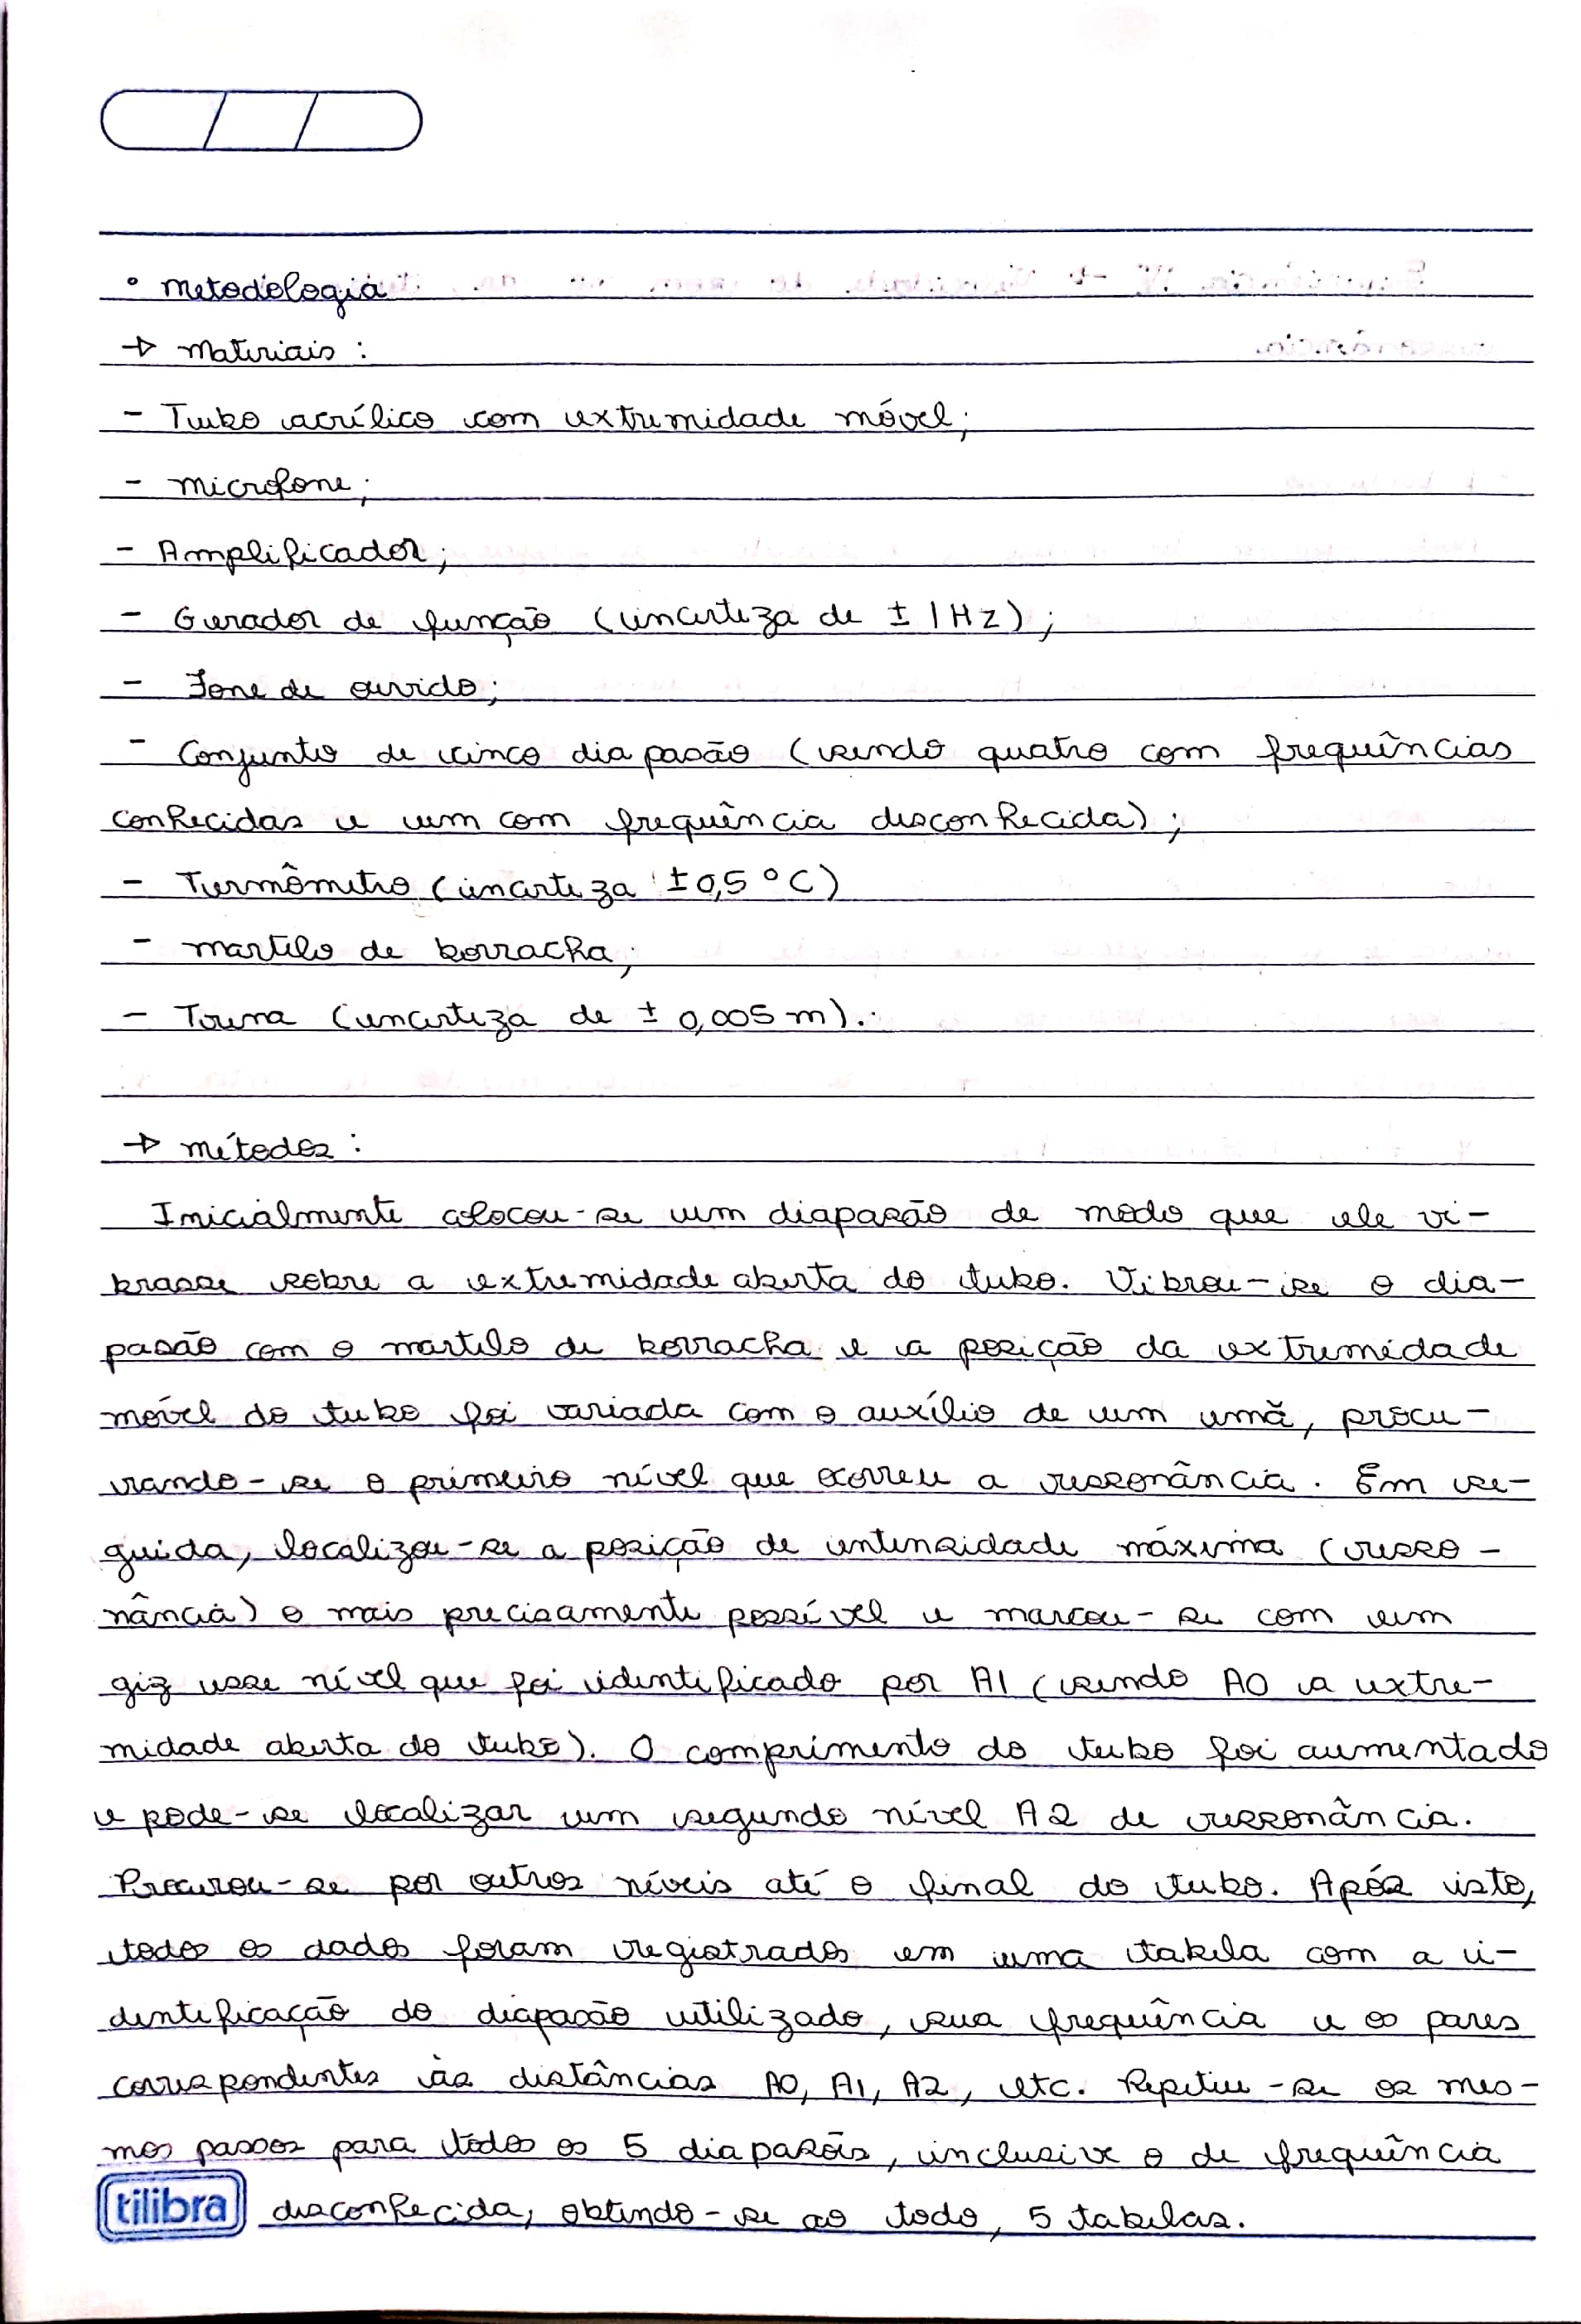 • Metodologia
→ Materiais:
- Tubo acrílico com extremidade móvel;
- Microfone;
- Amplificador;
- Gerador de função (incerteza de ± 1Hz);
- Fone de ouvido;
- Conjunto de cinco diapasão (sendo quatro com frequências
conhecidas e um com frequência desconhecida);
- Termômetro (incerteza ± 0,5 °C)
- Martelo de borracha;
- Trena (incerteza de ± 0,005 m).
→ Métodos:
Inicialmente colocou-se um diapasão de modo que ele vi-
brasse sobre a extremidade aberta do tubo. Vibrou-se o dia-
pasão com o martelo de borracha e a posição da extremidade
móvel do tubo foi variada com o auxílio de um imã, procu-
rando-se o primeiro nível que ocorreu a ressonância. Em se-
guida, localizou-se a posição de intensidade máxima (resso-
nância) o mais precisamente possível e marcou-se com um
giz esse nível que foi identificado por A1 (sendo A0 a extre-
midade aberta do tubo). O comprimento do tubo foi aumentado
e pode-se localizar um segundo nível A2 de ressonância.
Procurou-se por outros níveis até o final do tubo. Após isto,
todos os dados foram registrados em uma tabela com a i-
dentificação do diapasão utilizado, sua frequência e os pares
correspondentes às distâncias A0, A1, A2, etc. Repetiu-se os mes-
mos passos para todos os 5 diapasões, inclusive o de frequência
tilibra desconhecida, obtendo-se ao todo, 5 tabelas.